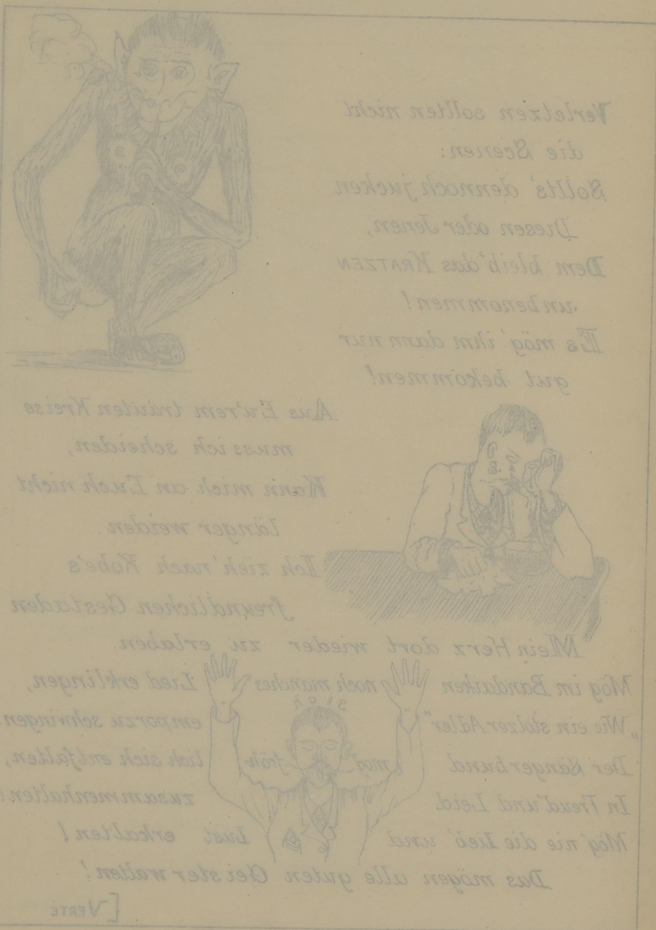 Verletzen sollten nicht
die Scenen:
Sollts' dennoch jucken
Diesen oder Jenen,
Dem bleib' das KRATZEN
unbenommen!
Es mög' ihm dann nur
gut bekommen!
Aus Eu'rem trauten Kreise
muss ich scheiden,
Kann mich an Euch nicht
länger weiden.
Ich zieh' nach Kobe's
freundlichen Gestaden
Mein Herz dort wieder zu erlaben.
Mög im Bandaiken noch manches Lied erklingen,
„Wie ein stolzer Adler" emporzuschwingen
Der Sängerbund mög' fröhlich sich entfalten,
In Freud' und Leid zusammenhalten
Mög' nie die Lieb' und Lust erkalten!
Das mögen alle guten Geister walten!
[VERTE